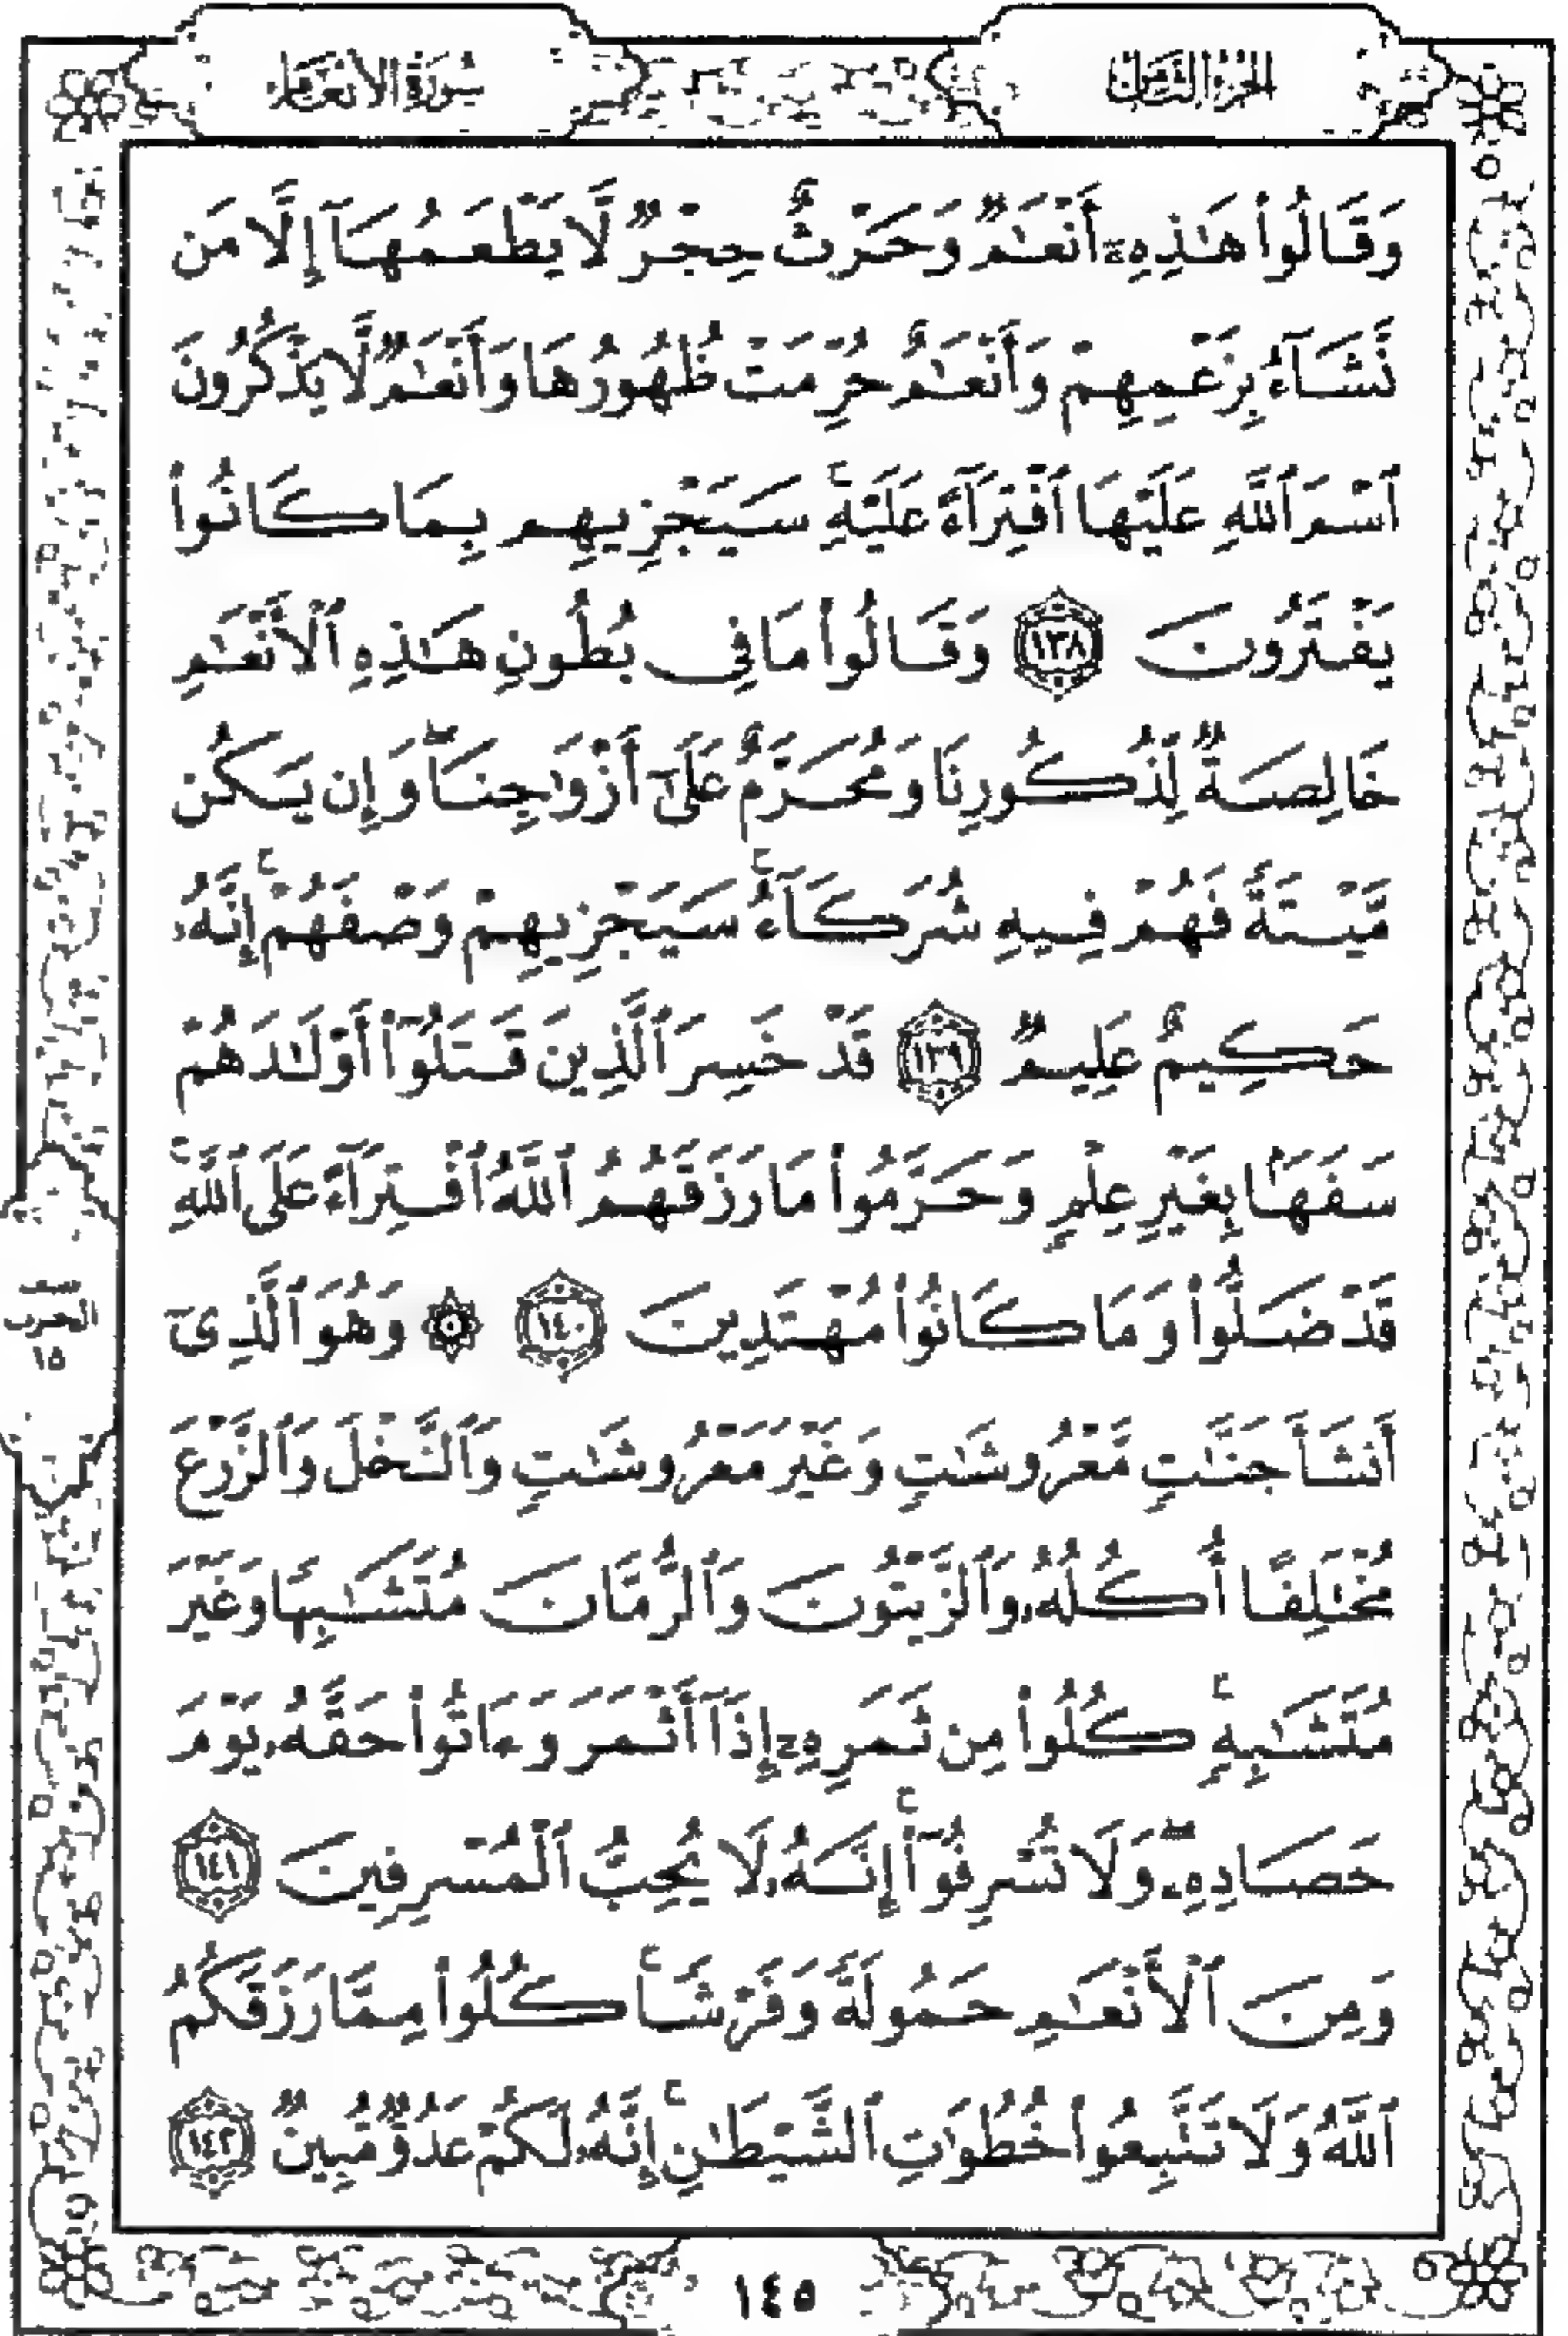 الجزء الثامن
سورة الأنعام
وَقَالُوا۟ هَـٰذِهِۦٓ أَنْعَـٰمٌ وَحَرْثٌ حِجْرٌ لَّا يَطْعَمُهَآ إِلَّا مَن
نَّشَآءُ بِزَعْمِهِمْ وَأَنْعَـٰمٌ حُرِّمَتْ ظُهُورُهَا وَأَنْعَـٰمٌ لَّا يَذْكُرُونَ
ٱسْمَ ٱللَّهِ عَلَيْهَا ٱفْتِرَآءً عَلَيْهِ ۚ سَيَجْزِيهِم بِمَا كَانُوا۟
يَفْتَرُونَ ١٣٨ وَقَالُوا۟ مَا فِى بُطُونِ هَـٰذِهِ ٱلْأَنْعَـٰمِ
خَالِصَةٌ لِّذُكُورِنَا وَمُحَرَّمٌ عَلَىٰٓ أَزْوَٰجِنَا ۖ وَإِن يَكُن
مَّيْتَةً فَهُمْ فِيهِ شُرَكَآءُ ۚ سَيَجْزِيهِمْ وَصْفَهُمْ ۚ إِنَّهُۥ
حَكِيمٌ عَلِيمٌ ١٣٩ قَدْ خَسِرَ ٱلَّذِينَ قَتَلُوٓا۟ أَوْلَـٰدَهُمْ
سَفَهًۢا بِغَيْرِ عِلْمٍ وَحَرَّمُوا۟ مَا رَزَقَهُمُ ٱللَّهُ ٱفْتِرَآءً عَلَى ٱللَّهِ ۚ
قَدْ ضَلُّوا۟ وَمَا كَانُوا۟ مُهْتَدِينَ ١٤٠ ۞ وَهُوَ ٱلَّذِىٓ
أَنشَأَ جَنَّـٰتٍ مَّعْرُوشَـٰتٍ وَغَيْرَ مَعْرُوشَـٰتٍ وَٱلنَّخْلَ وَٱلزَّرْعَ
مُخْتَلِفًا أُكُلُهُۥ وَٱلزَّيْتُونَ وَٱلرُّمَّانَ مُتَشَـٰبِهًا وَغَيْرَ
مُتَشَـٰبِهٍ ۚ كُلُوا۟ مِن ثَمَرِهِۦٓ إِذَآ أَثْمَرَ وَءَاتُوا۟ حَقَّهُۥ يَوْمَ
حَصَادِهِۦ ۖ وَلَا تُسْرِفُوٓا۟ ۚ إِنَّهُۥ لَا يُحِبُّ ٱلْمُسْرِفِينَ ١٤١
وَمِنَ ٱلْأَنْعَـٰمِ حَمُولَةً وَفَرْشًا ۚ كُلُوا۟ مِمَّا رَزَقَكُمُ
ٱللَّهُ وَلَا تَتَّبِعُوا۟ خُطُوَٰتِ ٱلشَّيْطَـٰنِ ۚ إِنَّهُۥ لَكُمْ عَدُوٌّ مُّبِينٌ ١٤٢
الحزب
١٥
١٤٥